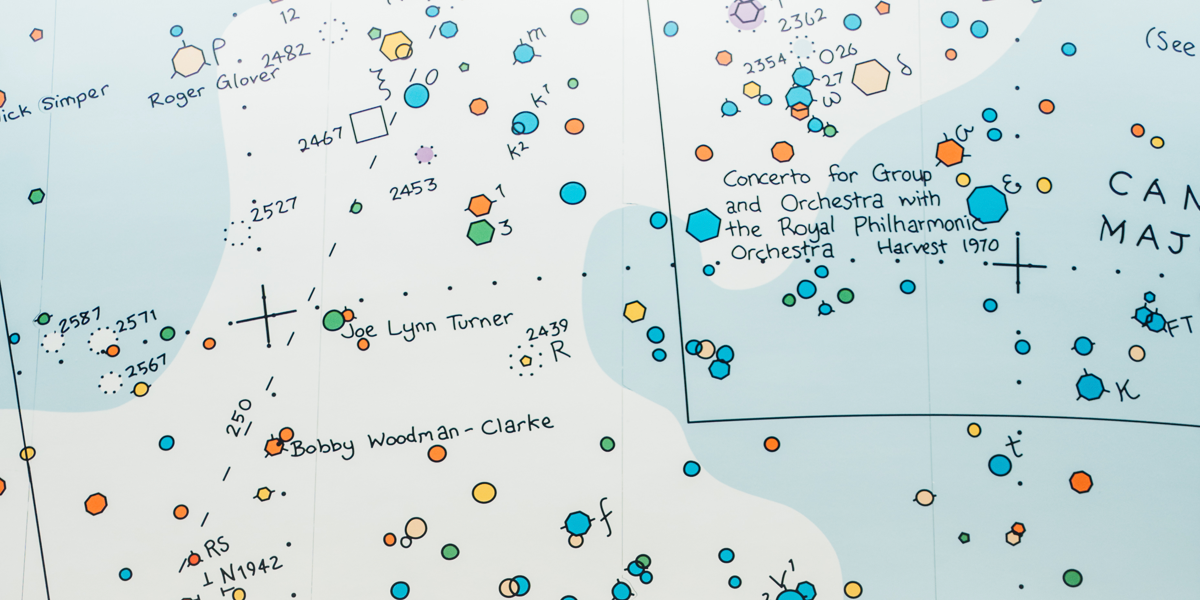 12
2482
ρ
Roger Glover
ick Simper
ξ
10
m
2362
2354
O 26
27
ω
δ
(See
k¹
k²
2467
2453
2527
1
3
σ
ε
Concerto for Group
and Orchestra with
the Royal Philharmonic
Orchestra Harvest 1970
CAN
MAJ
2587
2571
2567
Joe Lynn Turner
2439
R
FT
K
250
Bobby Woodman-Clarke
t
f
RS
N1942